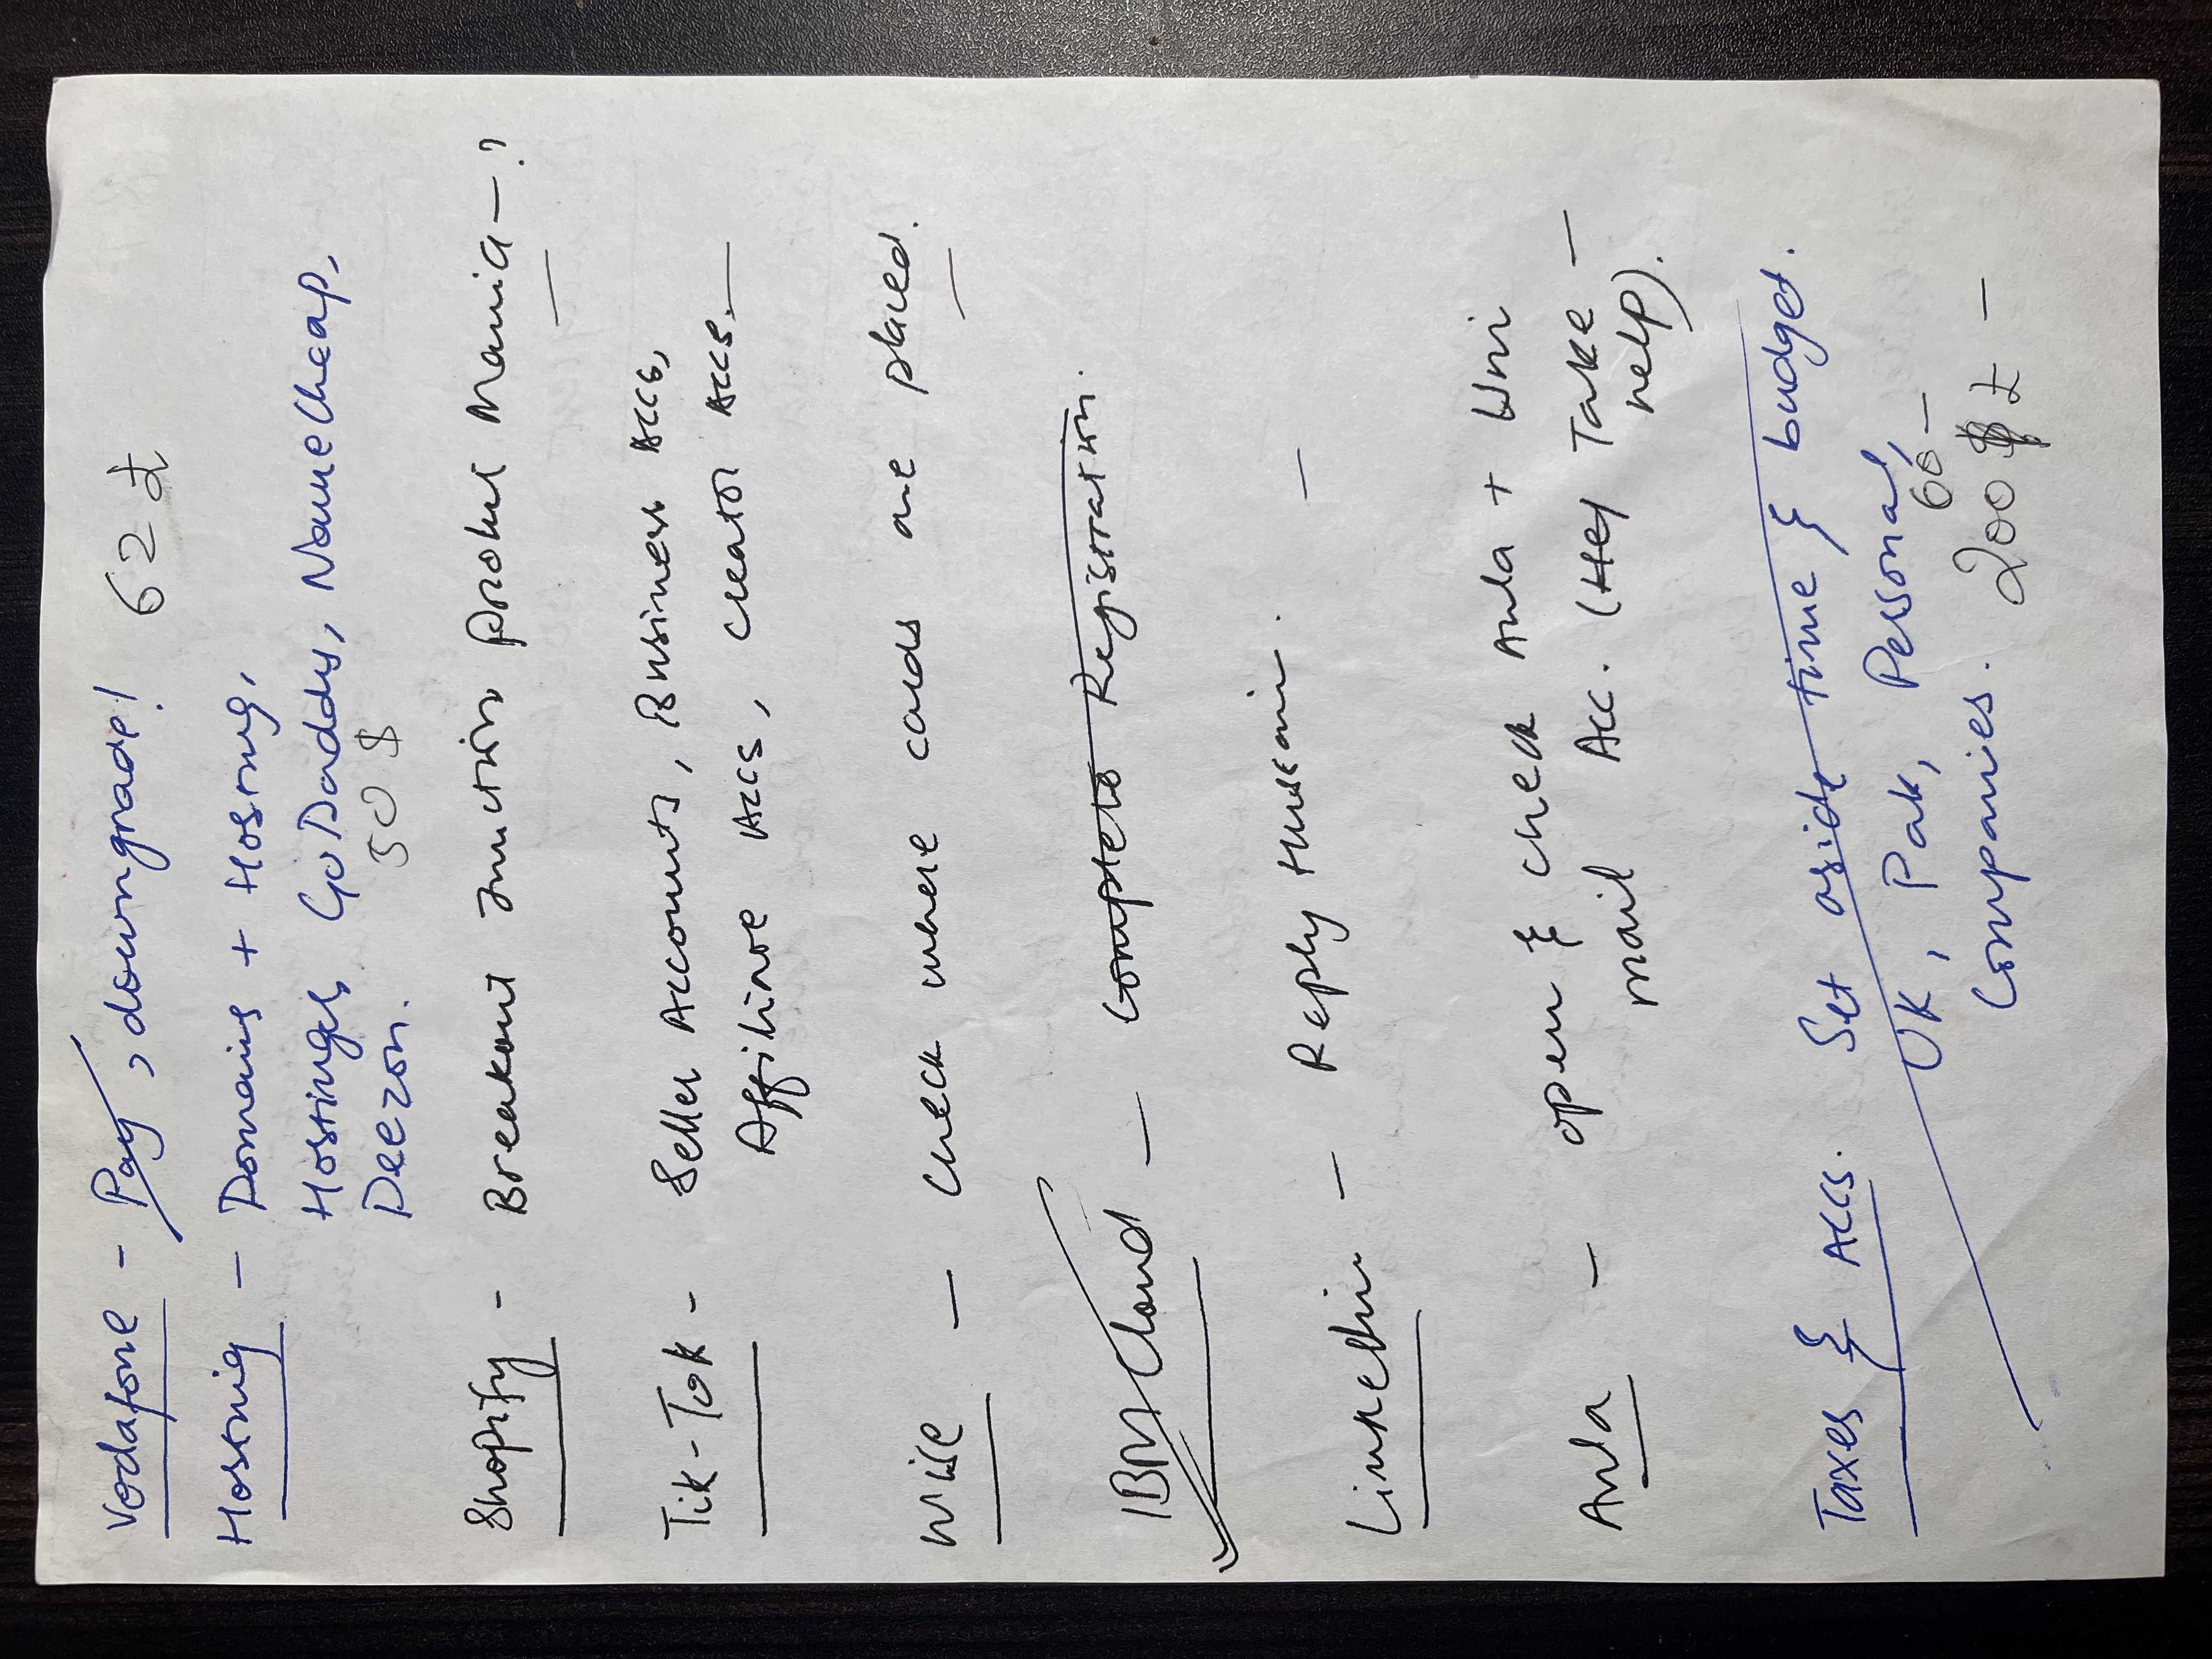 Vodafone - Pay, downgrade! 62 £
Hosting - Domains + Hosting,
Hostinger, GoDaddy, NameCheap,
Deezon. 50 $
Shopify - Breakout Junction Probuk Mania - ?
Tik-Tok - Seller Accounts, Business Accs,
Affiliate Accs, Creator Accs.
Wise - Check where cards are placed.
IBM Cloud - Complete Registration.
LinkedIn - Reply Hussain.
Aula - open & check Aula + Uni
mail Acc. (Hey Take
help).
Taxes & Accs. Set aside time & budget.
UK, Pak, Personal,
60
Companies. 200 £